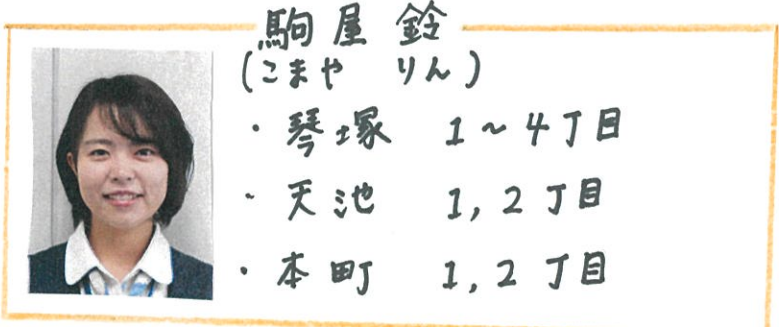 駒屋 鈴
(こまや りん)
・琴塚 1～4丁目
・天池 1,2丁目
・本町 1,2丁目